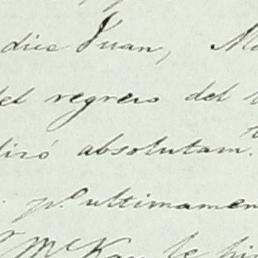 dice Juan, M
del regreso del
diró absolutam.te
p.a ultimamen
McKay le hi